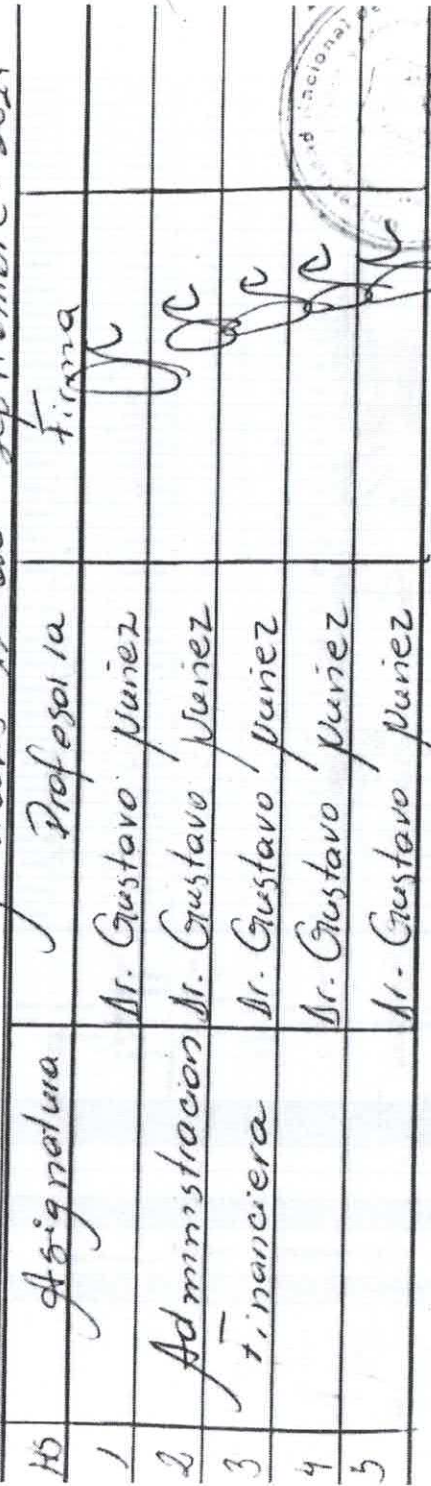 de septiembre 2021
HS Asignatura Profesor/a Firma
1 Dr. Gustavo Nuñez
2 Administracion Dr. Gustavo Nuñez
3 Financiera Dr. Gustavo Nuñez
4 Dr. Gustavo Nuñez
5 Dr. Gustavo Nuñez
nacional de